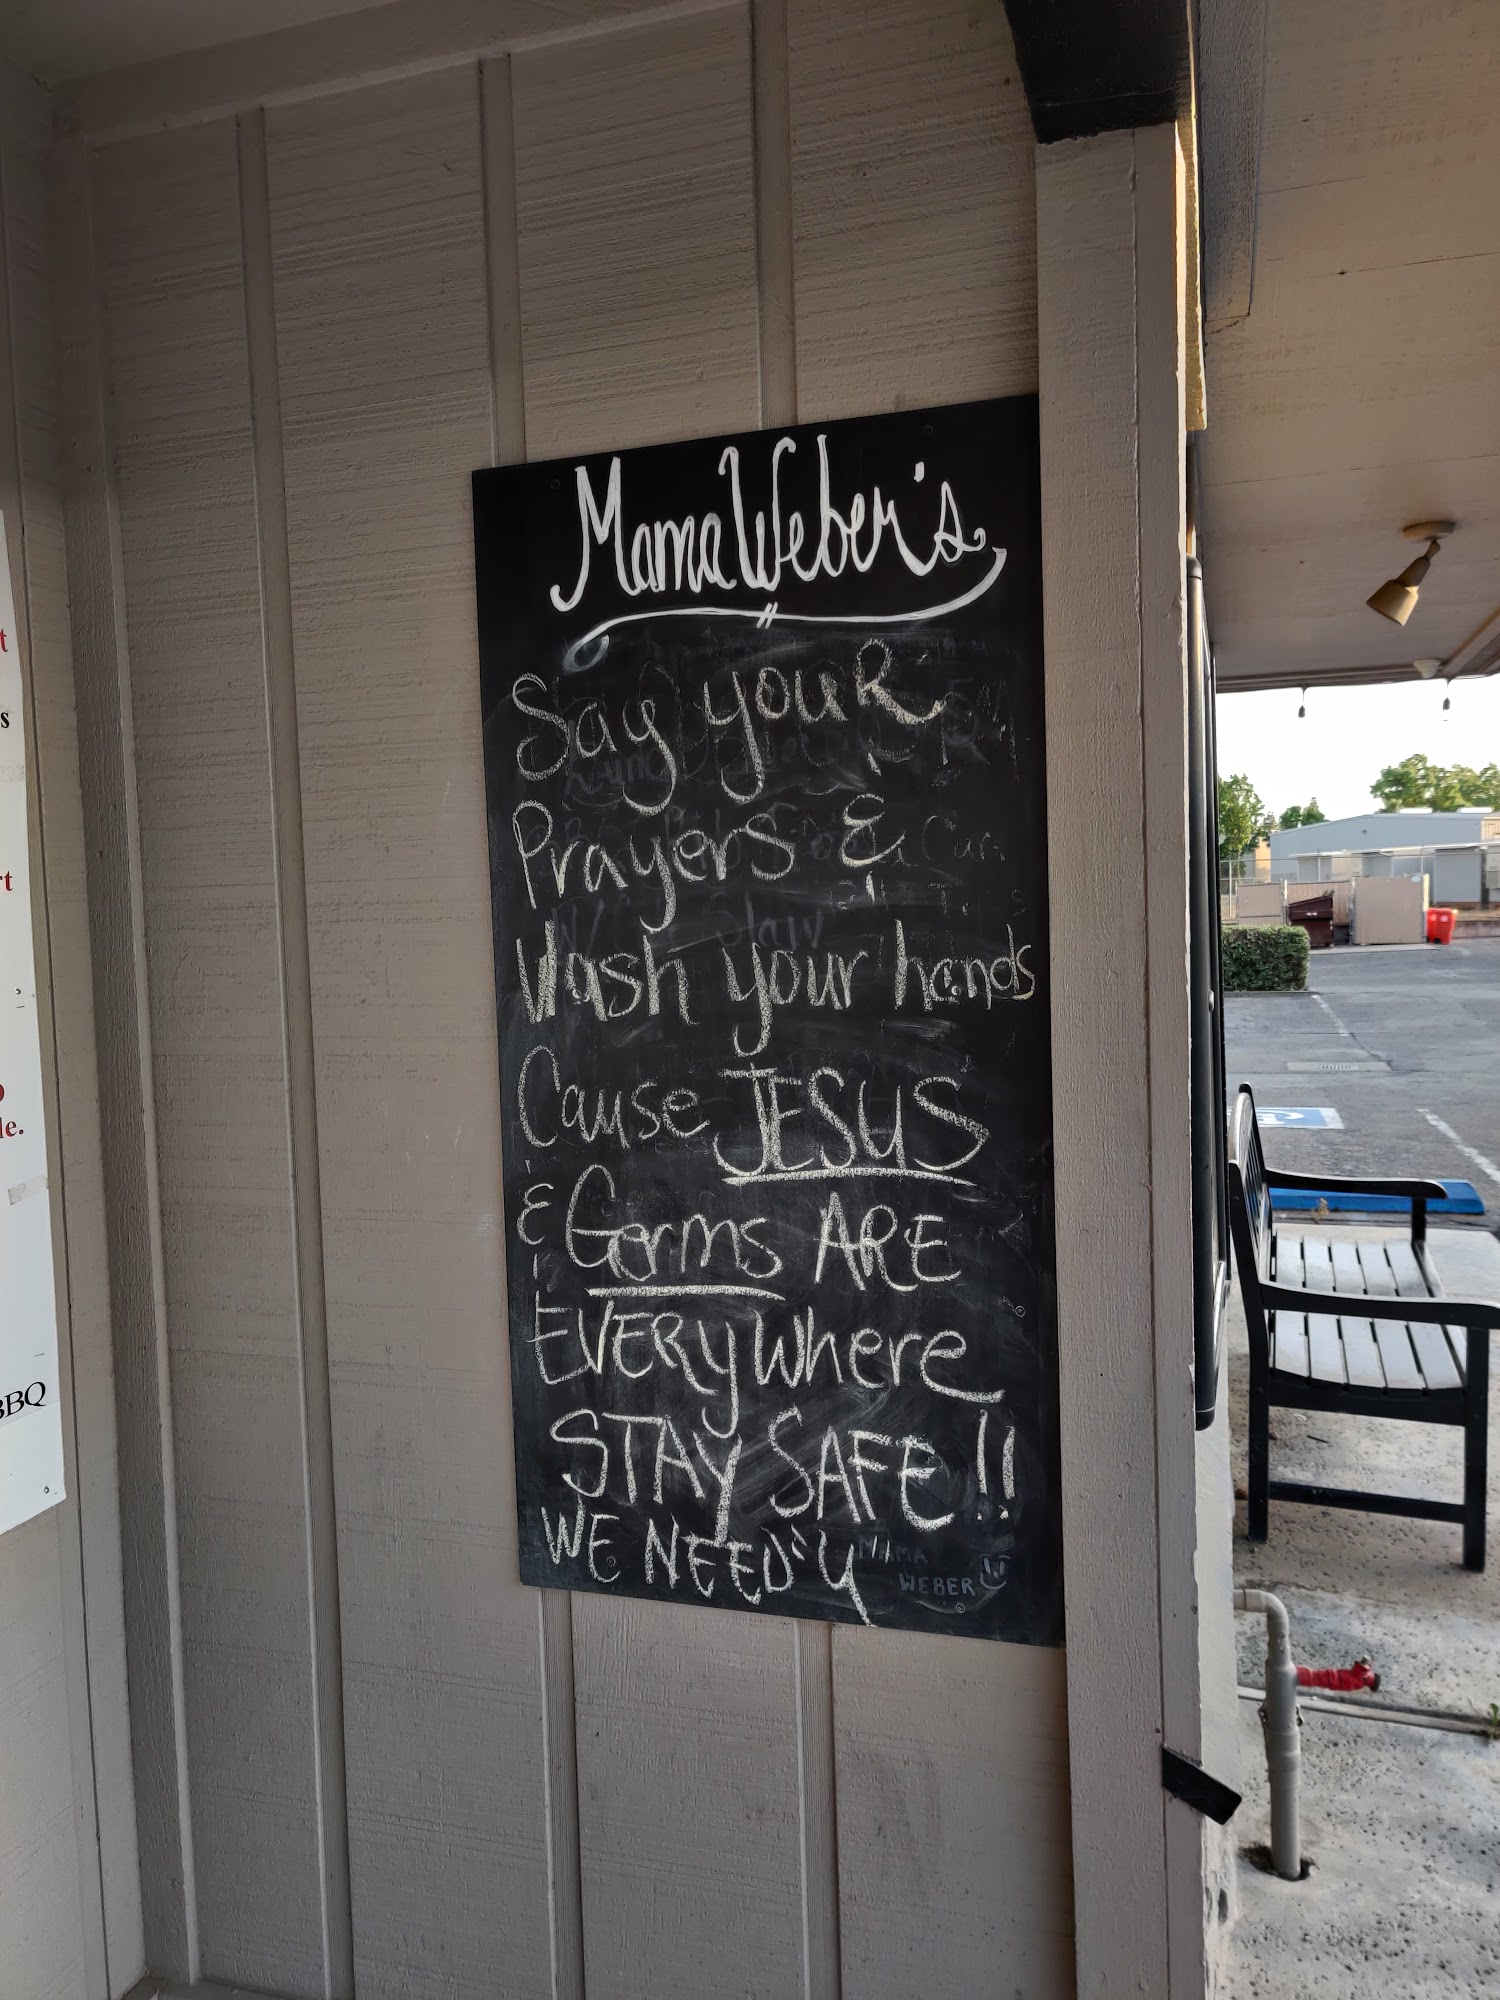 Mama Weber's
Say youR
Prayers &
Wash your hands
Cause JESUS
& Germs ARE
EVERywhere
STAY SAFE!!
WE NEED "U"
MAMA
WEBER
t
s
rt
le.
BBQ